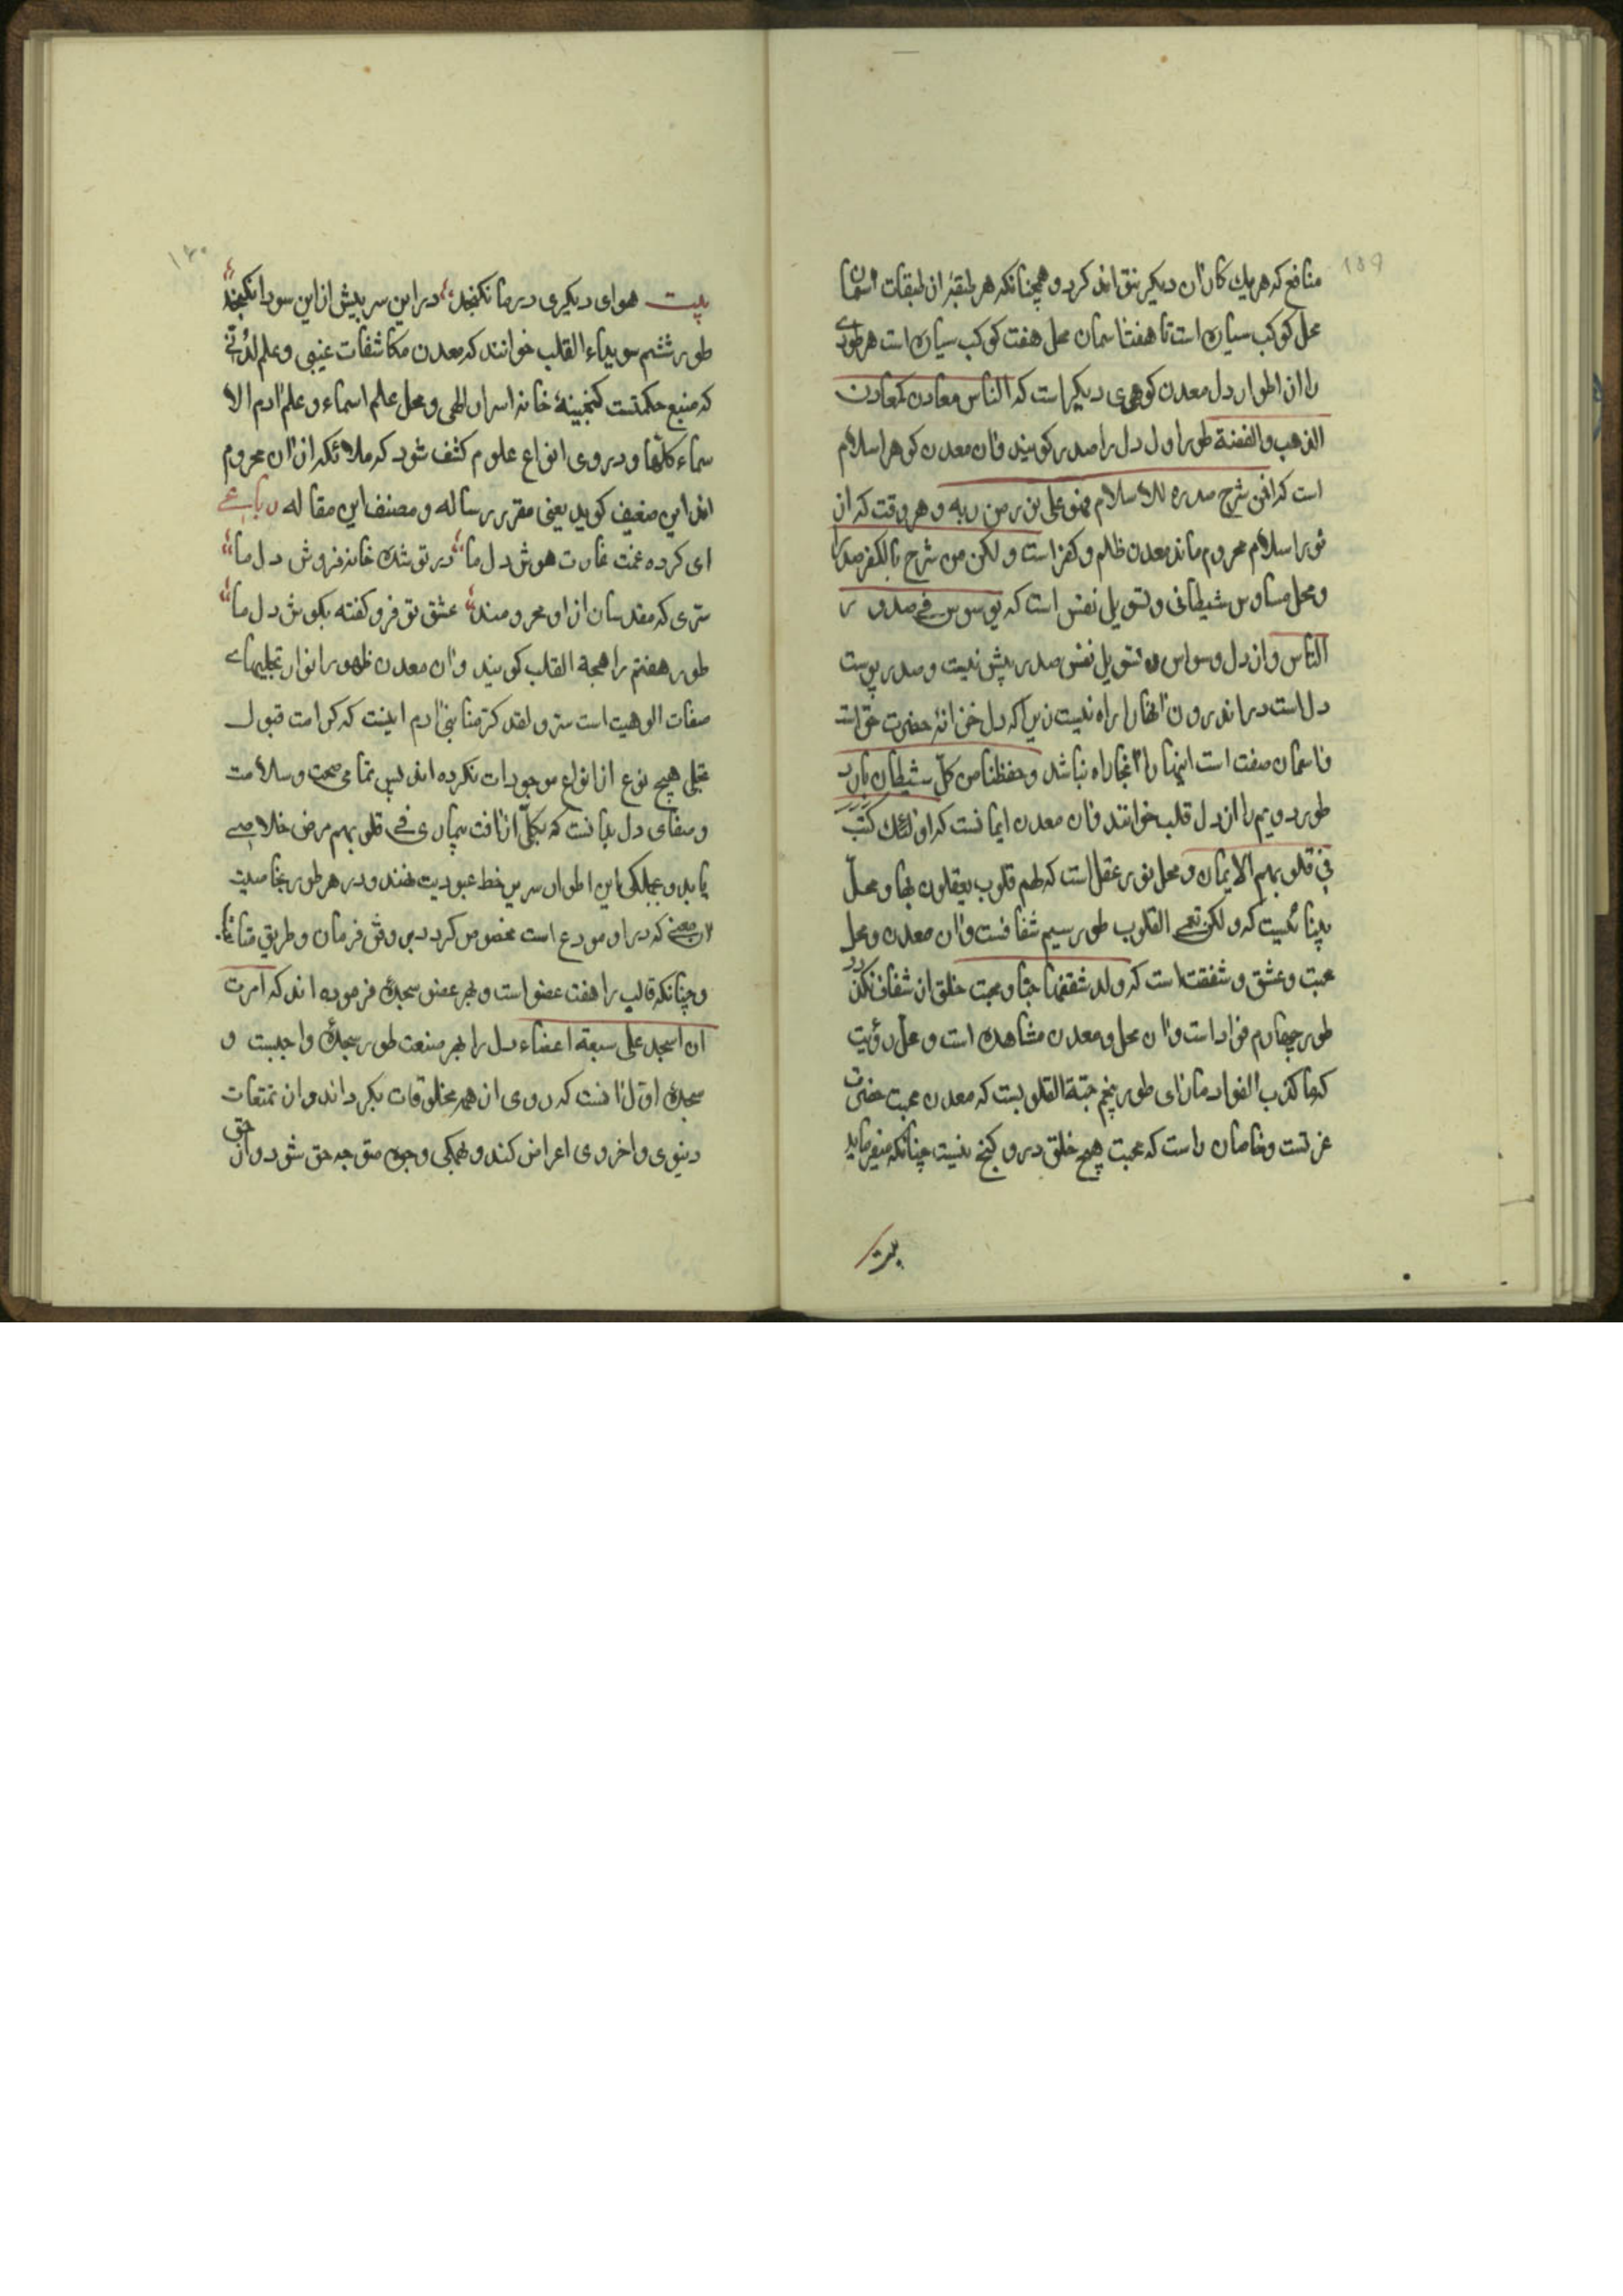 ۱۵۹
منافع که هر یك کار ان دیکر نتواند کرد و همچنانکه هر طبقهٔ از طبقات اسمان
محل کوکب سیاره است تا هفت اسمان محل هفت کوکب سیاره است هر طوری
را از اطوار دل معدن کوهری دیکر است که الناس معادن کمعادن
الذهب والفضة طور اول دل را صدر کویند وآن معدن کوهر اسلام
است که افمن شرح صدره للاسلام فهو علی نور من ربه و هر وقت که از
نور اسلام محروم ماند معدن ظلم و کفر است و لکن من شرح بالکفر صدرا
و محل وساوس شیطانی و تسویل نفس است که یوسوس فی صدور
الناس و از دل وسواس و تسویل نفس صدر بیش نیست و صدر پوست
دل است در اندرون انها را راه نیست زیرا که دل خزانهٔ حضرت حق است
و اسمان صفت است اینها را آنجا راه نباشد و حفظناها من کل شیطان مارد
طور دویم را از دل قلب خوانند وآن معدن ایمانست که اولئك کتب
فی قلوبهم الایمان و محل نور عقل است که لهم قلوب یعقلون بها و محل
بینائیست که و لکن تعمی القلوب طور سیم شغافست وآن معدن و محل
محبت و عشق و شفقت است که ولد شغفها حبا و محبت خلق از شغاف نکذرد
طور چهارم فواد است وآن محل و معدن مشاهده است و محل رؤیت
که ما کذب الفواد ما رای طور پنجم حبة القلوبست که معدن محبت حضرت
عزتست و خاصان راست که محبت هیچ خلق درو کنج نیست چنانکه میفرماید
بیت
۱۶۰
بیت هوای دیکری در ما نکنجد درین سر بیش از این سودا نکنجد
طور ششم سویداء القلب خوانند که معدن مکاشفات غیبی و علم لدنی
که منبع حکمتست کنجینهٔ خانه اسرار الهی و محل علم اسماء و علم آدم الا
سماء کلها و در وی انواع علوم کشف شود که ملائکه از ان محروم
اند این ضعیف کوید یعنی مقرر رساله و مصنف این مقاله رباعی
ای کرده غمت غارت هوش دل ما درد تو شده خانه فروش دل ما
سری که مقدسان از او محرومند عشق تو فرو کفته بکوش دل ما
طور هفتم را مهجة القلب کویند وآن معدن ظهور انوار تجلیهای
صفات الوهیت است سر و لقد کرمنا بنی آدم اینست که کرامت قبول
تجلی هیچ نوع از انواع موجودات نکرده اند پس تمامی صحت و سلامت
و صفای دل بدانست که بکلی از آفت بیماری فی قلوبهم مرض خلاصی
یابد و بجملکی این اطوار سر بر خط عبودیت نهند و در هر طور بخاصیت
آن معنی که در او مودع است مخصوص کردد بر وفق فرمان و طریق متابعة
و چنانکه قالب را هفت عضو است و بهر عضو سجده فرموده اند که امرت
ان اسجد علی سبعة اعضاء دل را بهر صنعت طور سجدهٔ واجبست و
سجده اول آنست که روی از همه مخلوقات بکرداند و از تمتعات
دنیوی و اخروی اعراض کند و بهمکی وجوه متوجه حق شود و از حق